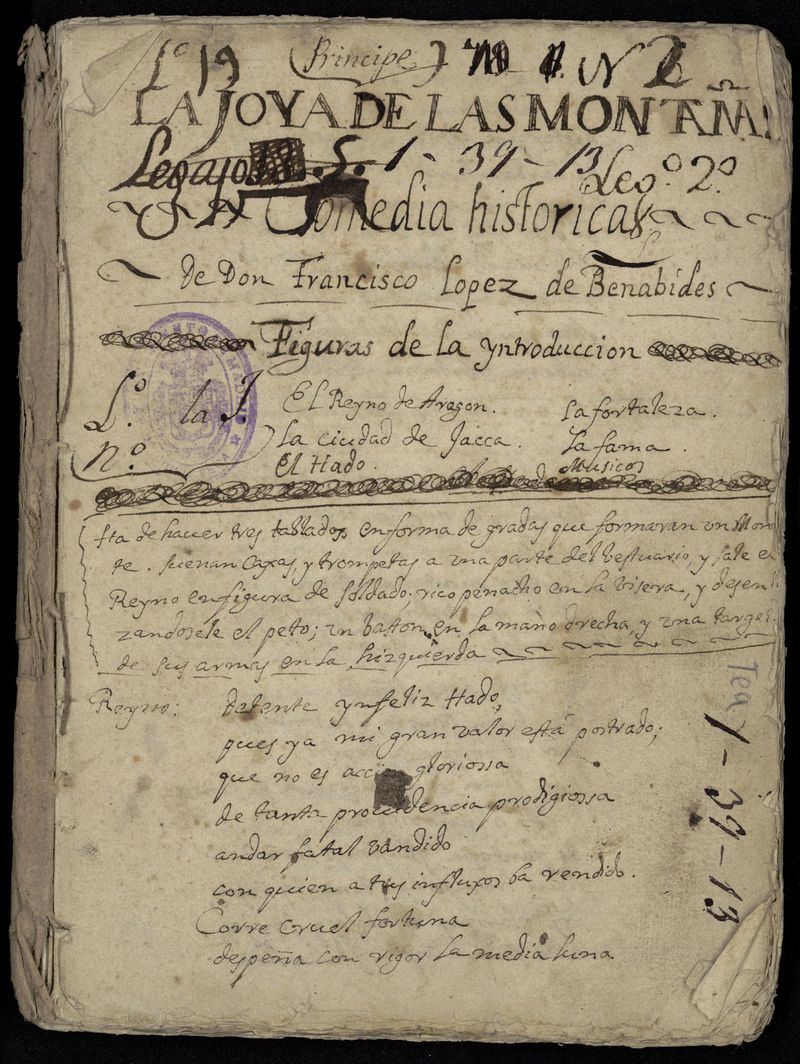 Lº 19 (Principe) N 2
LA JOYA DE LAS MONTAÑAS
Legajo S. 1-39-13 Legº. 2º
Comedia historica
de Don Francisco Lopez de Benabides
Figuras de la yntroduccion
Lº la J. El Reyno de Aragon. La fortaleza.
nº La ciudad de Jacca. La fama.
El Hado. Musicos
sta de hacer tres tablados en forma de gradas que formaran un Mon
te. suenan caxas, y trompetas a una parte del bestuario, y sale el
Reyno en figura de soldado; rico penacho en la visera, y desen
zandosele el peto; un baston en la mano drecha, y una targe
de sus armas en la hizquierda
Reyno: detente ynfeliz Hado,
pues ya mi gran valor està postrado;
que no es accion gloriossa
de tanta providencia prodigiossa
andar fatal vandido
con quien a tus influxos ba rendido.
Corre cruel fortuna
despeña con rigor la media luna
Tea 1-39-13